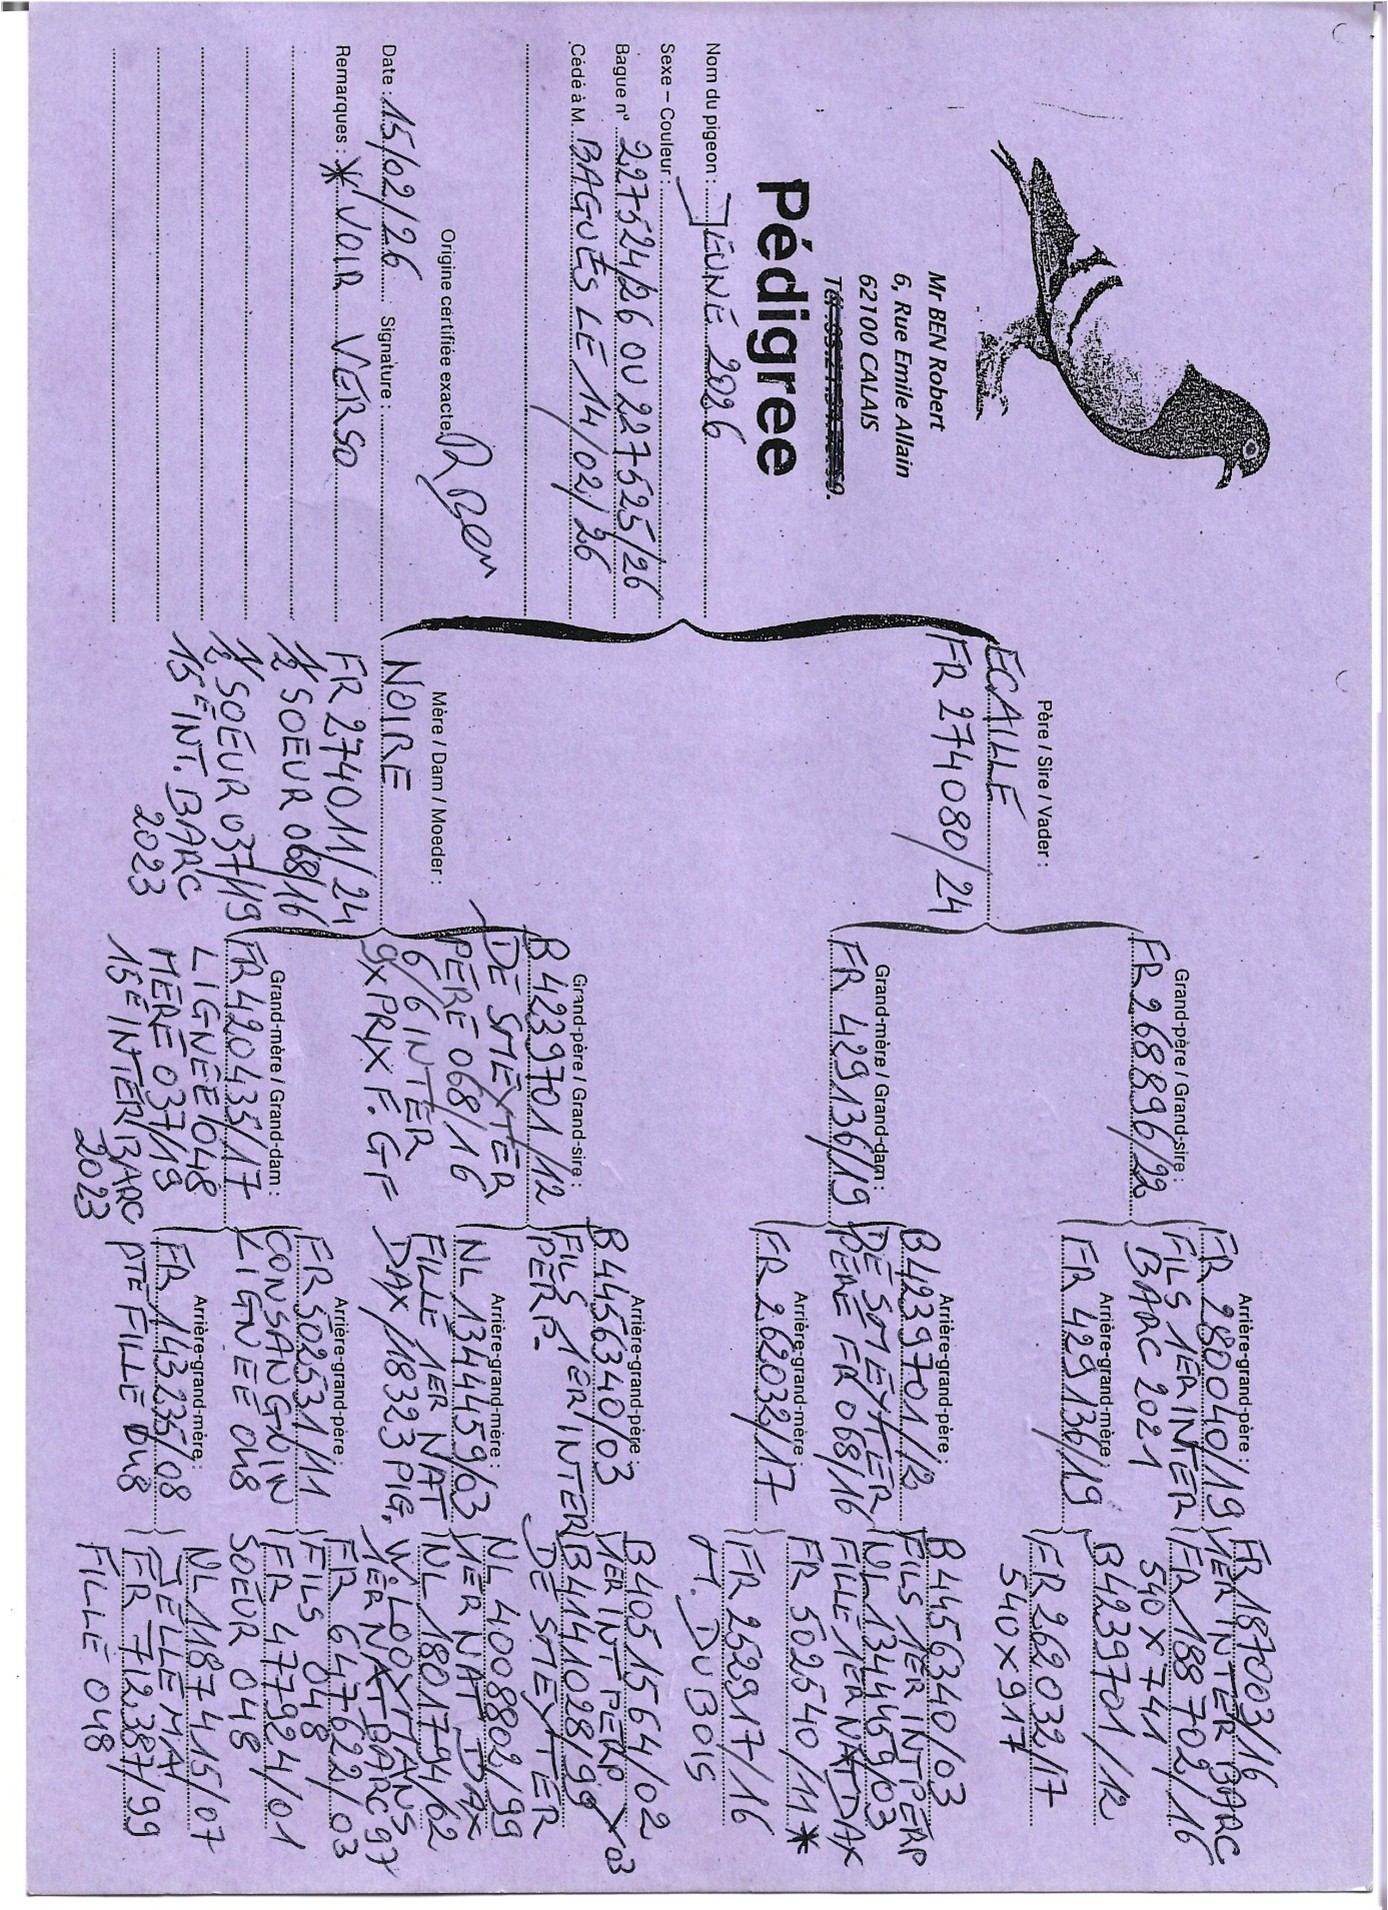 Mr BEN Robert
6, Rue Emile Allain
62100 CALAIS
Pédigree
Nom du pigeon : JEUNE 2026
Sexe – Couleur :
Bague n° 227524/26 OU 227525/26
Cédé à M. BAGUÉS LE 14/02/26
Origine certifiée exacte
Date : 15/02/26 Signature :
Remarques : * VOIR VERSO
Père / Sire / Vader :
ECAILLE
FR 274080/24
Mère / Dam / Moeder :
NOIRE
FR 274011/24
1/2 SOEUR 068/16
1/2 SOEUR 037/19
15E INT. BARC
2023
Grand-père / Grand-sire :
FR 268896/22
Grand-mère / Grand-dam :
FR 429136/19
Grand-père / Grand-sire :
B 4239701/12
DE SMEYTER
PERE 068/16
6/6 INTER
9X PRIX F. GF
Grand-mère / Grand-dam :
FR 420435/17
LIGNÉE 048
MERE 037/19
15E INTER BARC
2023
Arrière-grand-père :
FR 280040/19
FILS 1ER INTER
BARC 2021
Arrière-grand-mère :
FR 429136/19
Arrière-grand-père :
B4239701/12
DE SMEYTER
PERE FR 068/16
Arrière-grand-mère :
FR 262032/17
Arrière-grand-père :
B4456340/03
FILS 1ER INTER
PERP.
Arrière-grand-mère :
NL 1344459/03
FILLE 1ER NAT
DAX/18323 PIG.
Arrière-grand-père :
FR 502531/11
CONSANGUIN
LIGNEE 048
Arrière-grand-mère :
FR 143235/08
PTE FILLE 048
FR 187003/16
1ER INTER BARC
FR 188702/16
540 X 741
B4239701/12
FR 262032/17
540 X 917
B4456340/03
FILS 1ER INT PERP
NL 1344459/03
FILLE 1ER NAT DAX
FR 502540/11*
FR 252917/16
A. DUBOIS
B4051564/02
1ER INT PERP 03
B4141028/99
DE SMEYTER
NL 4008802/99
1ER NAT DAX
NL 1801794/02
1ER NAT BARC 97
FR 647622/03
FILS 048
FR 477924/01
SOEUR 048
NL 1187415/07
JELLEMA
FR 712387/99
FILLE 048